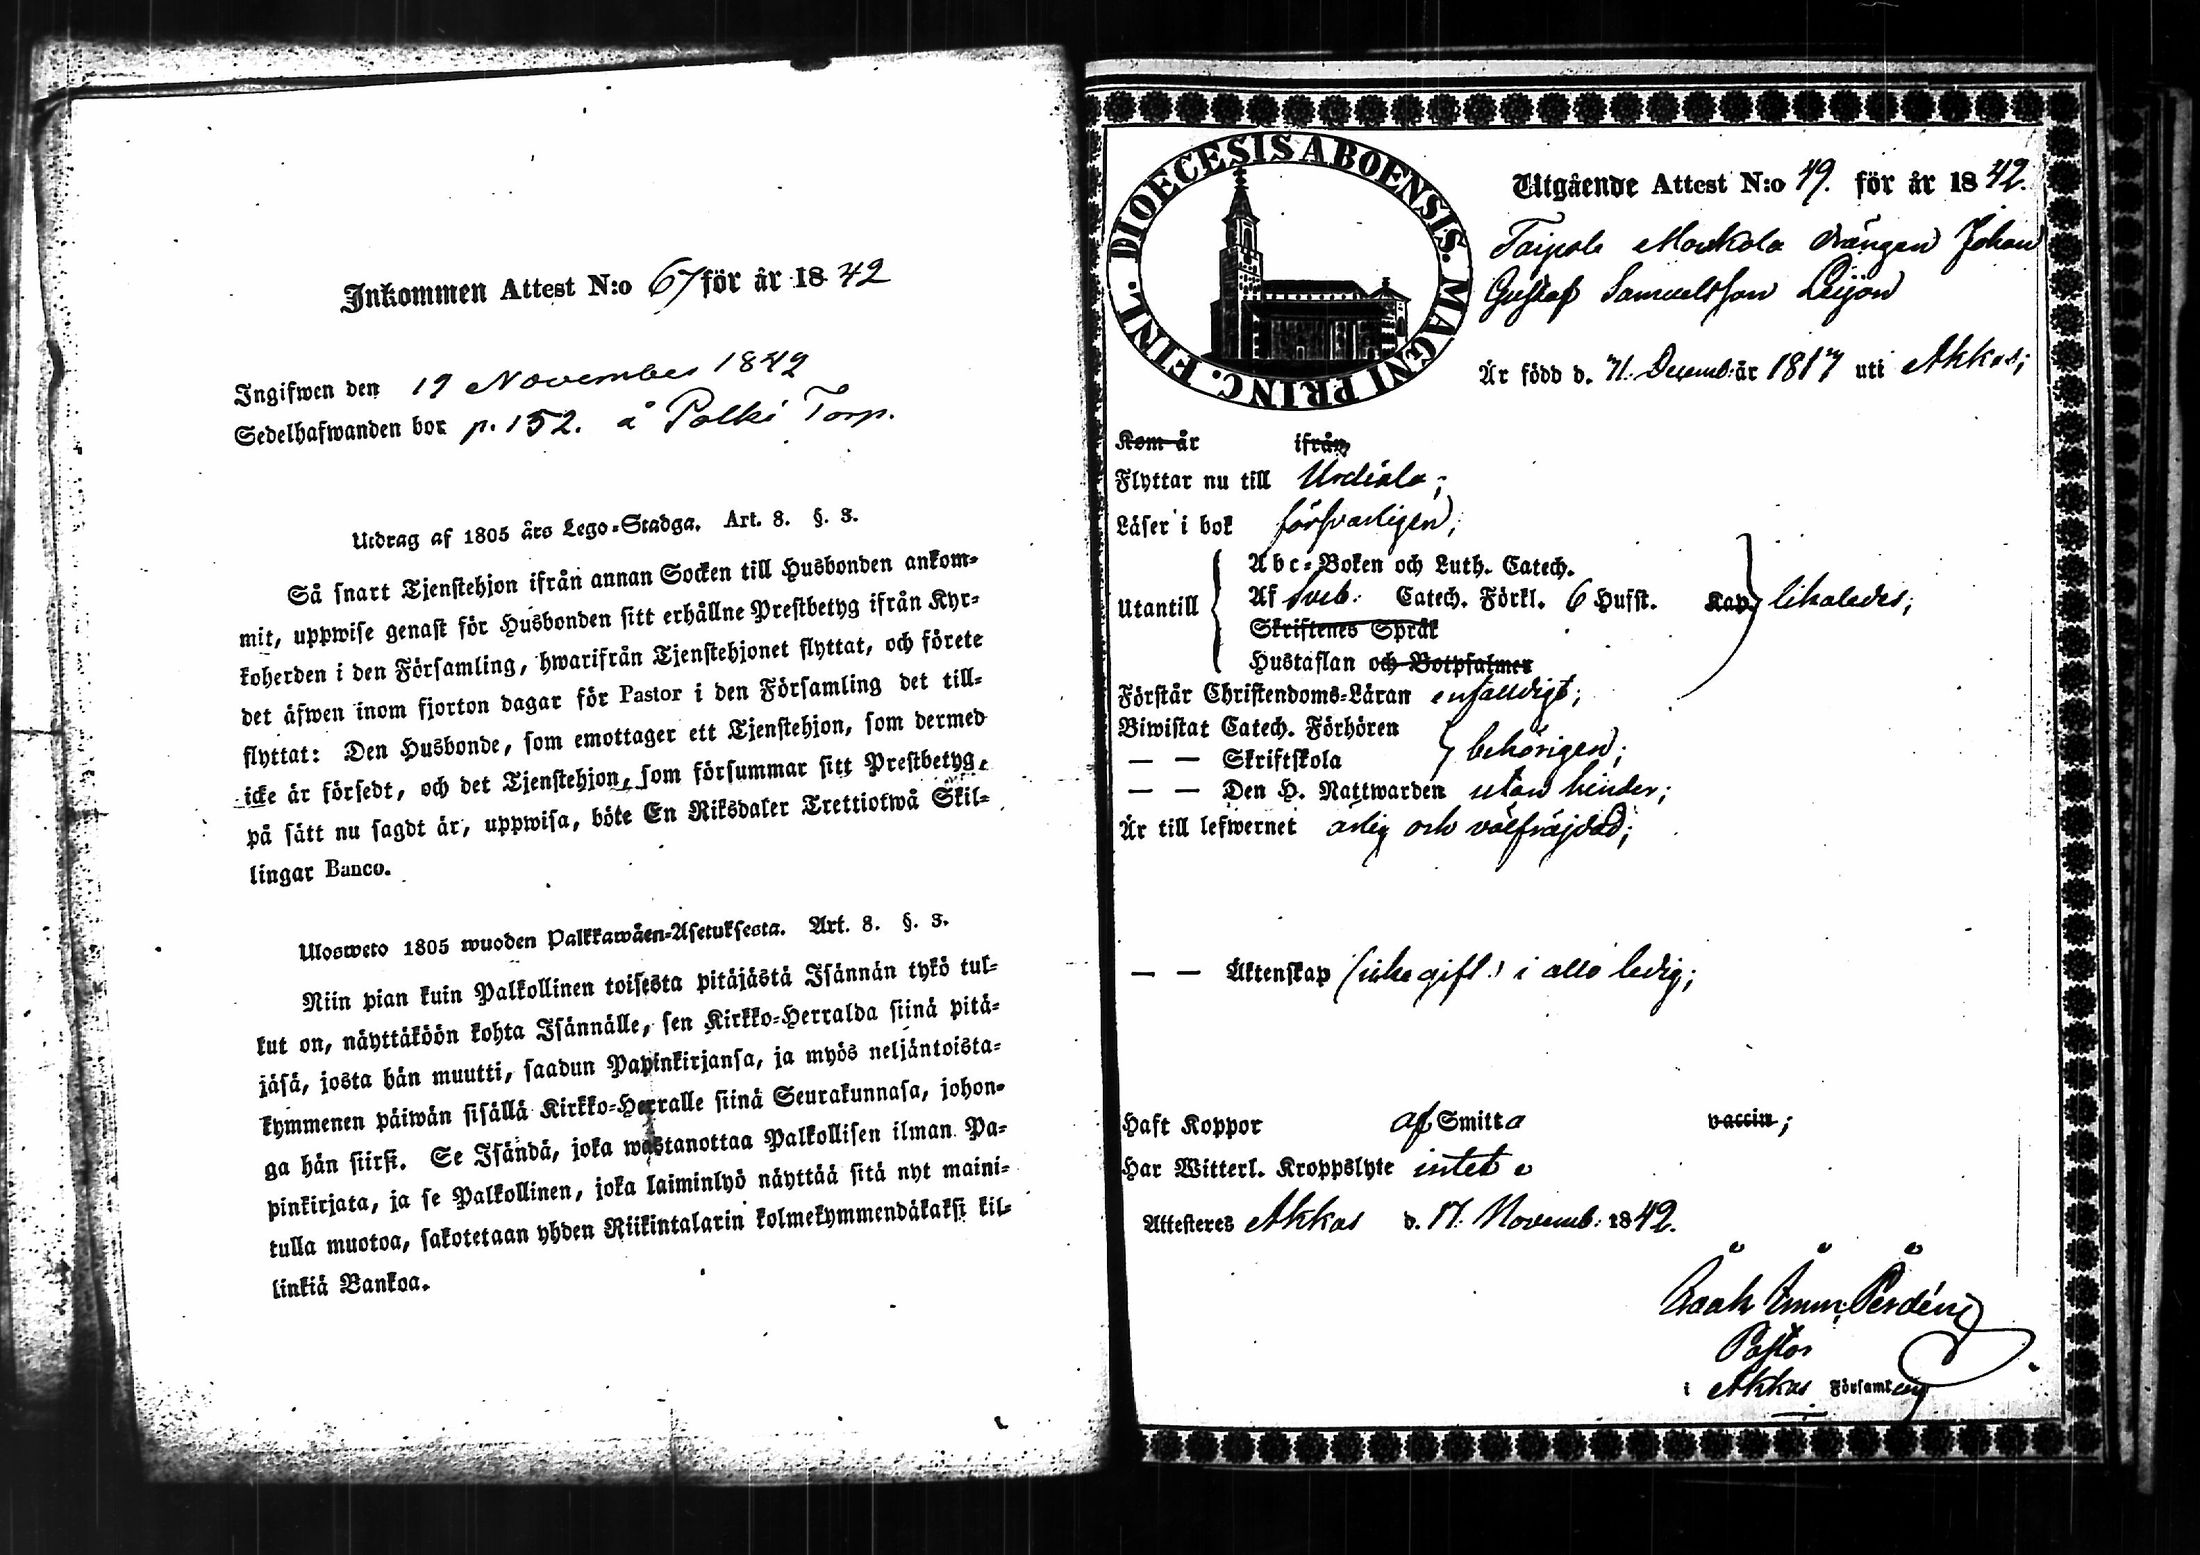 Inkommen Attest N:o 67 för år 1842
Ingifwen den 19 November 1842
Sedelhafwanden bor p. 152. å Palki Torp.
Utdrag af 1805 års Lego-Stadga. Art. 8. §. 3.
Så snart Tjenstehjon ifrån annan Socken till Husbonden ankom-
mit, uppwise genast för Husbonden sitt erhållne Prestbetyg ifrån Kyr-
koherden i den Församling, hwarifrån Tjenstehjonet flyttat, och förete
det äfwen inom fjorton dagar för Pastor i den Församling det till-
flyttat: Den Husbonde, som emottager ett Tjenstehjon, som dermed
icke är försedt, och det Tjenstehjon, som försummar sitt Prestbetyg,
på sätt nu sagdt är, uppwisa, böte En Riksdaler Trettiotwå Skil-
lingar Banco.
Ulosweto 1805 wuoden Palkkawäen-Asetuksesta. Art. 8. §. 3.
Niin pian kuin Palkollinen toisesta pitäjästä Isännän tykö tul-
kut on, näyttäköön kohta Isännälle, sen Kirkko-Herralda siinä pitä-
jäsä, josta hän muutti, saadun Papinkirjansa, ja myös neljäntoista-
kymmenen päiwän sisällä Kirkko-Herralle siinä Seurakunnasa, johon-
ga hän siirsi. Se Isändä, joka wastanottaa Palkollisen ilman Pa-
pinkirjata, ja se Palkollinen, joka laiminlyö näyttää sitä nyt maini-
tulla muotoa, sakotetaan yhden Riikintalarin kolmekymmendäkaksi kil-
linkiä Bankoa.
DIOECESIS ABOENSIS. MAGNI PRINC. FINL.
Utgående Attest N:o 49. för år 1842.
Taipale drängen Johan
Gustaf Samuelsson Leijon
Är född d. 71. Decemb: år 1817 uti Akkas;
Kom år ifrån
Flyttar nu till Urdiala;
Läser i bok försvarligen;
Abc-Boken och Luth. Catech.
Utantill Af Sveb: Catech. Förkl. 6 Hufst. Kap. likaledes;
Skriftenes Språk
Hustaflan och Botpsalmer
Förstår Christendoms-Läran enfaldigt;
Biwistat Catech. Förhören
— — Skriftskola behörigen;
— — Den H. Nattwarden utan hinder;
Är till lefwernet ärlig och välfräjdad;
— — Äktenskap (icke gift) i allo ledig;
Haft Koppor af Smitta vaccin;
Har Witterl. Kroppslyte intet
Attesteres Akkas d. 17. Novemb: 1842.
Isaak Emm: Perdén
Pastor
i Akkas Församling